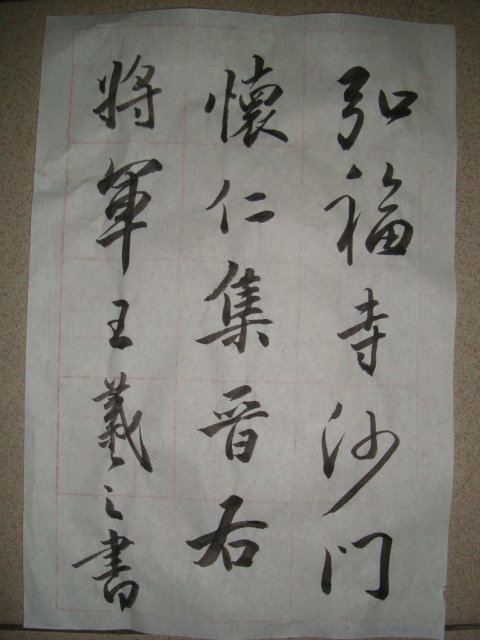 弘福寺沙门
懷仁集晋右
將軍王羲之書